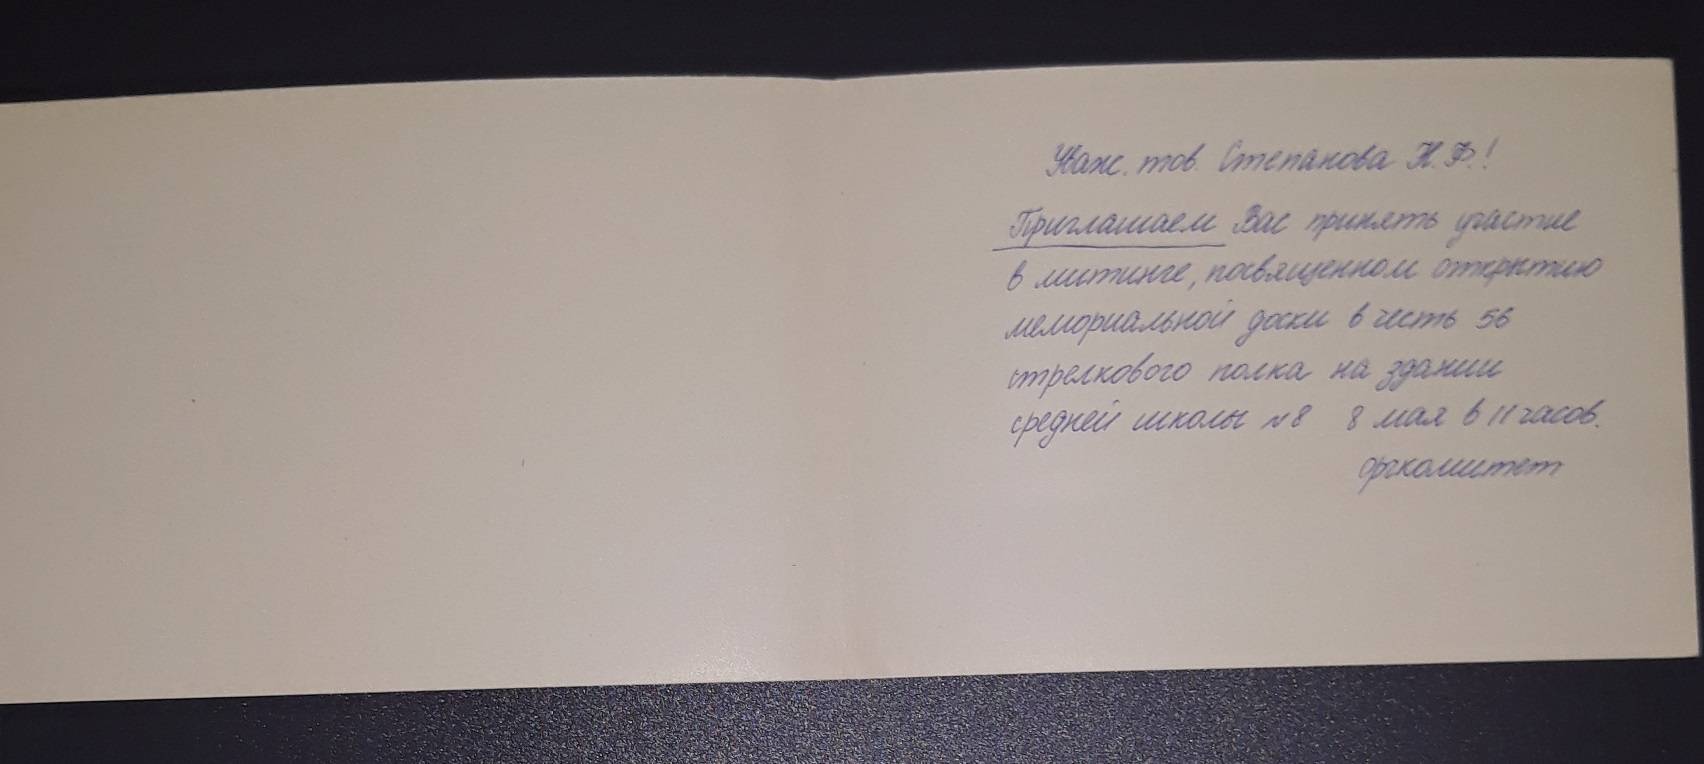 Уваж. тов. Степанова Н.Ф.!
Приглашаем Вас принять участие
в митинге, посвященном открытию
мемориальной доски в честь 56
стрелкового полка на здании
средней школы №8 8 мая в 11 часов.
оргкомитет